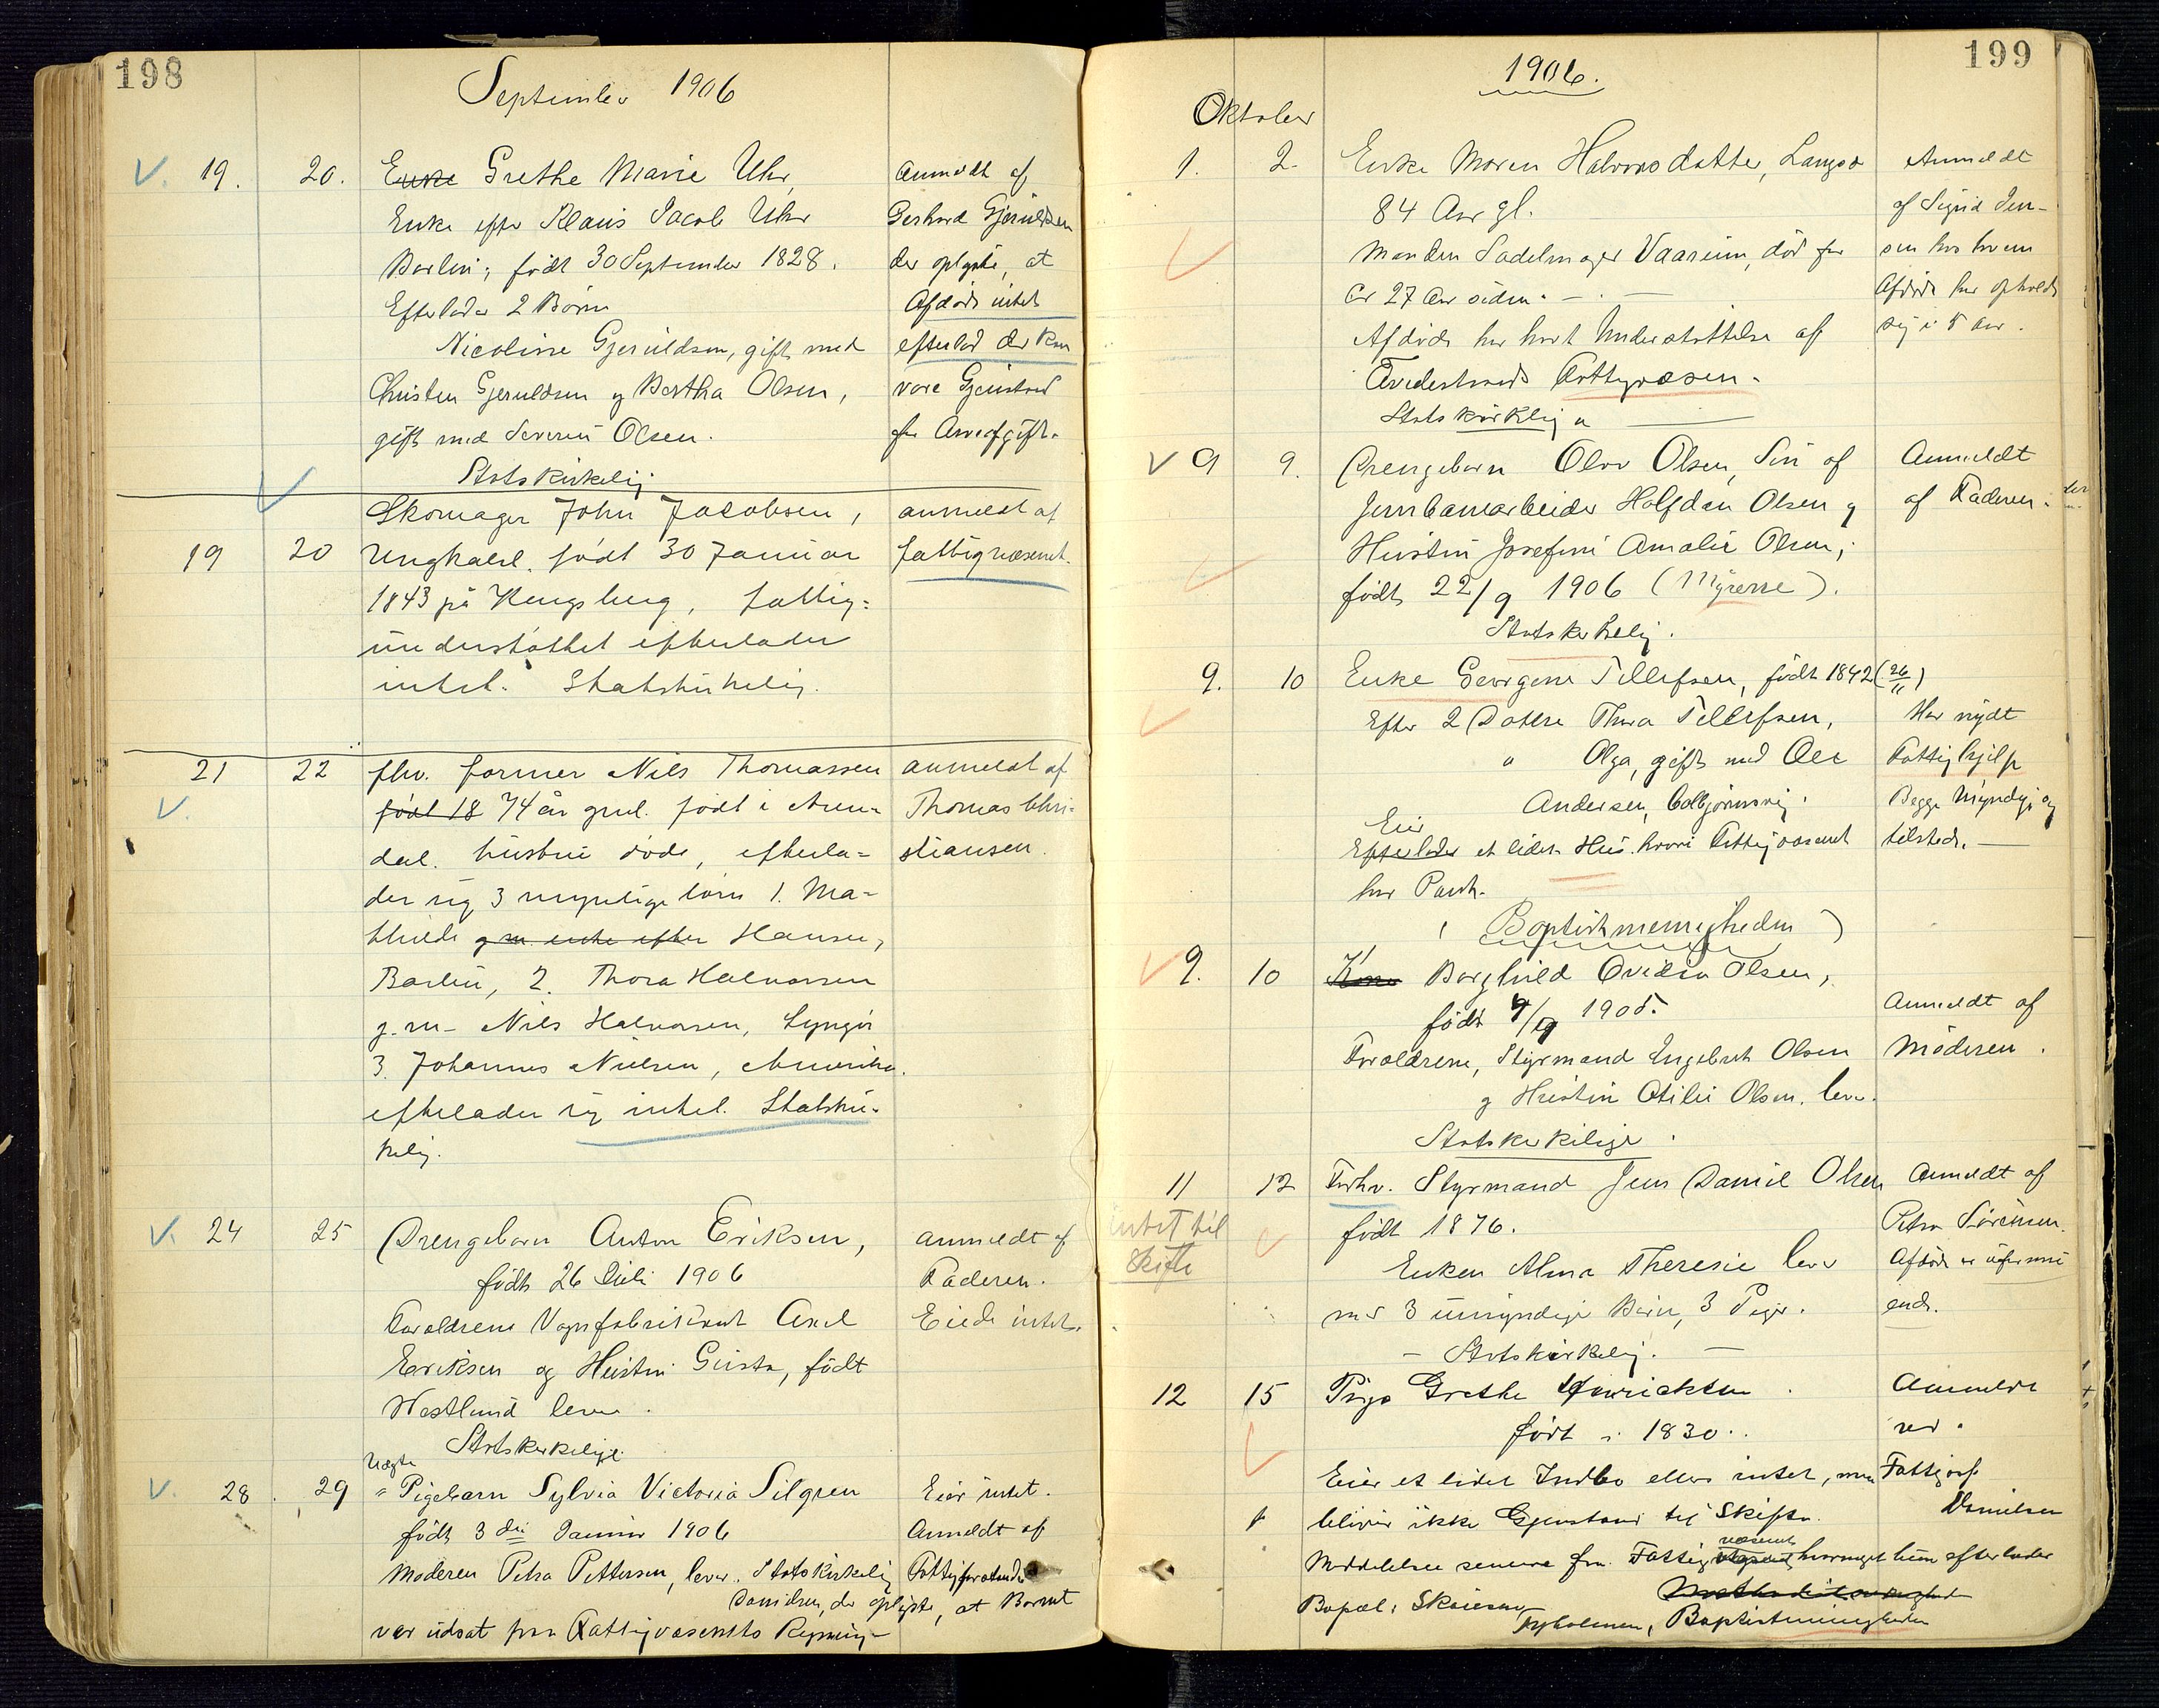 198
September 1906
19. 20. Enke Grethe Marie Uhr,
Enke efter Klaus Jacob Uhr
Barlin; født 30 September 1828.
Efterlader 2 Børn
Nicoline Gjeruldsen, gift med
Christen Gjeruldsen og Bertha Olsen,
gift med Severin Olsen.
Statskirkelig
Anmeldt af
Gerhard Gjeruldsen
der oplyste, at
Afdøde intet
efterlod der kan
være Gjenstand
for Arveafgift.
19 20 Skomager John Jacobsen,
Ungkarl. født 30 Januar
1843 på Kongsberg, fattig-
understøttet efterlader
intet. Statskirkelig.
anmeldt af
fattigvæsenet.
21 22 fhv. former Nils Thomassen
født 18 74 år gml. født i Aren-
dal. hustru død, efterla-
der sig 3 myndige børn 1. Ma-
thilde g.m. enke efter Hansen,
Barlin, 2. Thora Halvorsen
g.m. Nils Halvorsen, Lyngør
3. Johannes Nielsen, Amerika.
efterlader sig intet. Statskir-
kelig.
anmeldt af
Thomas Chri-
stiansen.
24 25 Drengebarn Anton Eriksen,
født 26 Juli 1906
Forældrene Vognfabrikant Axel
Eriksen og Hustru Gusta, født
Westlund lever.
Statskirkelige
anmeldt af
Faderen.
Eiede intet.
28. 29 Uægte
" Pigebarn Sylvia Victoria Silgren
født 3 die Januar 1906
Moderen Petra Pettersen, lever. Statskirkelig
Eier intet.
Anmeldt af
Fattigforstander
Danielsen, der oplyste, at Barnet
var udsat paa Fattigvæsenets Regning-
199
1906.
Oktober
1. 2. Enke Maren Halvorsdatter, Langsæ
84 Aar gl.
Manden Sadelmager Vaareim, død for
ca 27 Aar siden. -
Afdøde har havt Understøttelse af
Tvedestrands Fattigvæsen.
Statskirkelig
Anmeldt
af Sigrid Jen-
sen hos hvem
Afdøde har opholdt
sig i 5 Aar.
9 9. Drengebarn Olav Olsen, Søn af
Jernbanearbeider Halfdan Olsen og
Hustru Josefine Amalie Olsen;
født 22/9 1906 (Myrene).
Statskirkelig.
Anmeldt
af Faderen.
9. 10 Enke Georgine Tellefsen, født 1842 (26/11)
Efter 2 Døttre Thora Tellefsen,
" Olga, gift med Ole
Andersen, Colbjørnsvig.
Eier
Efterlader et lidet Hus. hvori Fattigvæsenet
har Pant.
(Baptistmenigheden)
Har nydt
Fattighjelp
Begge Myndige og
tilstede.
9. 10 Kone Borghild Ovidia Olsen,
født 4/9 1905.
Forældrene, Styrmand Engebret Olsen
og Hustru Otilie Olsen. lever.
Statskirkelige.
Anmeldt af
Moderen.
11 12 Forhv. Styrmand Jens Daniel Olsen
født 1876.
Enken Alma Theresie lever
med 3 umyndige Børn, 3 Piger.
- Statskirkelig. -
intet til
Skifte
Anmeldt af
Petra Sørensen.
Afdøde er uformu
ende.
12 15 Pige Grethe Henricksen
født i 1830.
Eier et lidet Indbo ellers intet, men
bliver ikke Gjenstand til Skifte.
Anmeldt
ved
Fattigorf.
Danielsen
Meddelelse senere fra Fattigvæsenet, hvorvidt hun efterlader
Bopæl: Skaiesnes
Myholmen, Baptistmenigheden